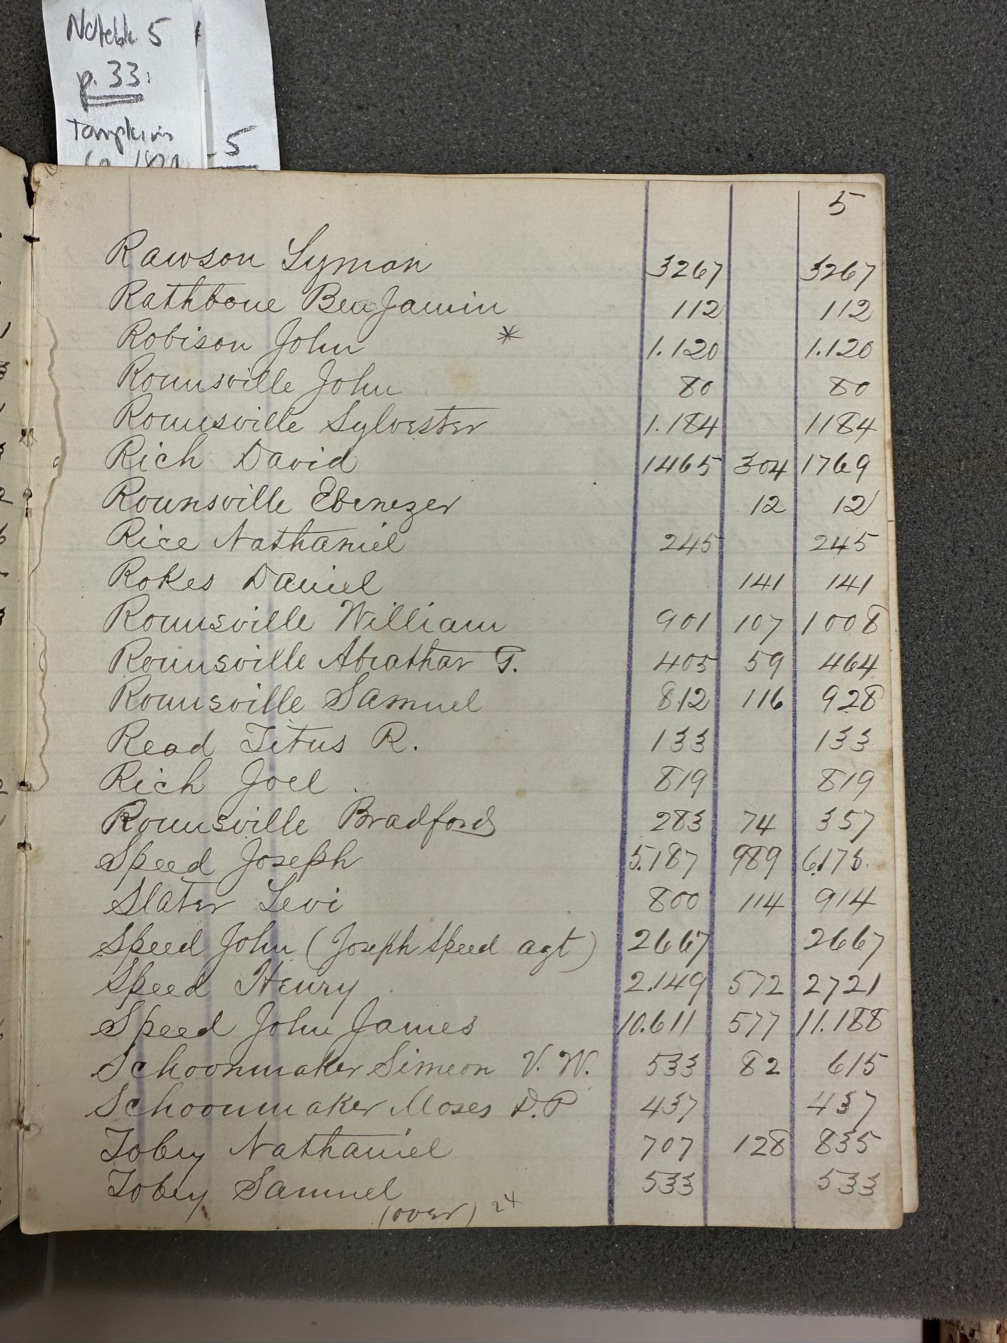 Notebk 5
p. 33.
Tompkins
Co. 1821
5
5
Rawson Lyman 3267 3267
Rathbone Benjamin 112 112
Robison John * 1.120 1.120
Rounsville John 80 80
Rounsville Sylvester 1.184 1184
Rich David 1465 304 1769
Rounsville Ebenezer 12 12
Rice Nathaniel 245 245
Rokes Daniel 141 141
Rounsville William 901 107 1008
Rounsville Abiathar T. 405 59 464
Rounsville Samuel 812 116 928
Read Titus R. 133 133
Rich Joel 819 819
Rounsville Bradford 283 74 357
Speed Joseph 5.187 989 6.176
Slater Levi 800 114 914
Speed John (Joseph Speed agt) 2667 2667
Speed Henry 2.149 572 2721
Speed John James 10.611 577 11.188
Schoonmaker Simeon V. W. 533 82 615
Schoonmaker Moses D.P 437 437
Tobey Nathaniel 707 128 835
Tobey Samuel 533 533
(over) 24